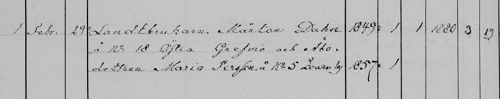 1 Febr. 29 Landtbrukaren Mårten Dahn 1849 1 1 1880 3 19
å No 18 Östra Grefvie och Åbo-
dottren Maria Persson å No 5 1857 1